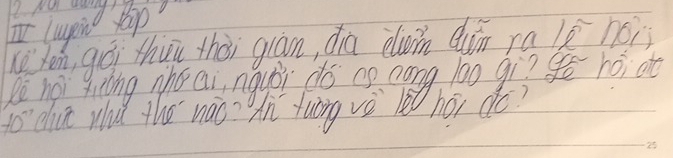 IV Luyện tập
Kể tên, giới thiệu thời gian, địa điểm diễn ra lễ hội,
Lễ hội tưởng nhớ ai, người đó có công lao gì? Lễ hội đc
tổ chức như thế nào? Ấn tượng về lễ hội đó?
25